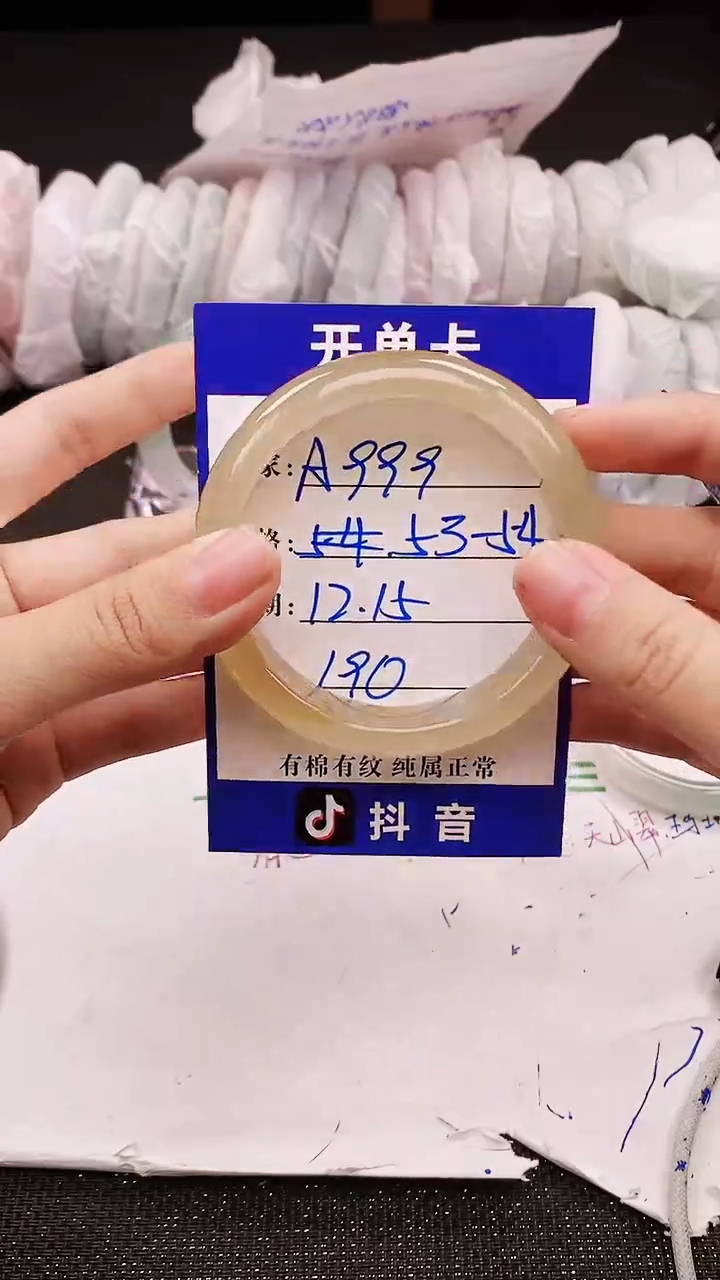 开单卡
家: A999
格: 54 53-54
期: 12.15
190
有棉有纹 纯属正常
抖音
天山翠